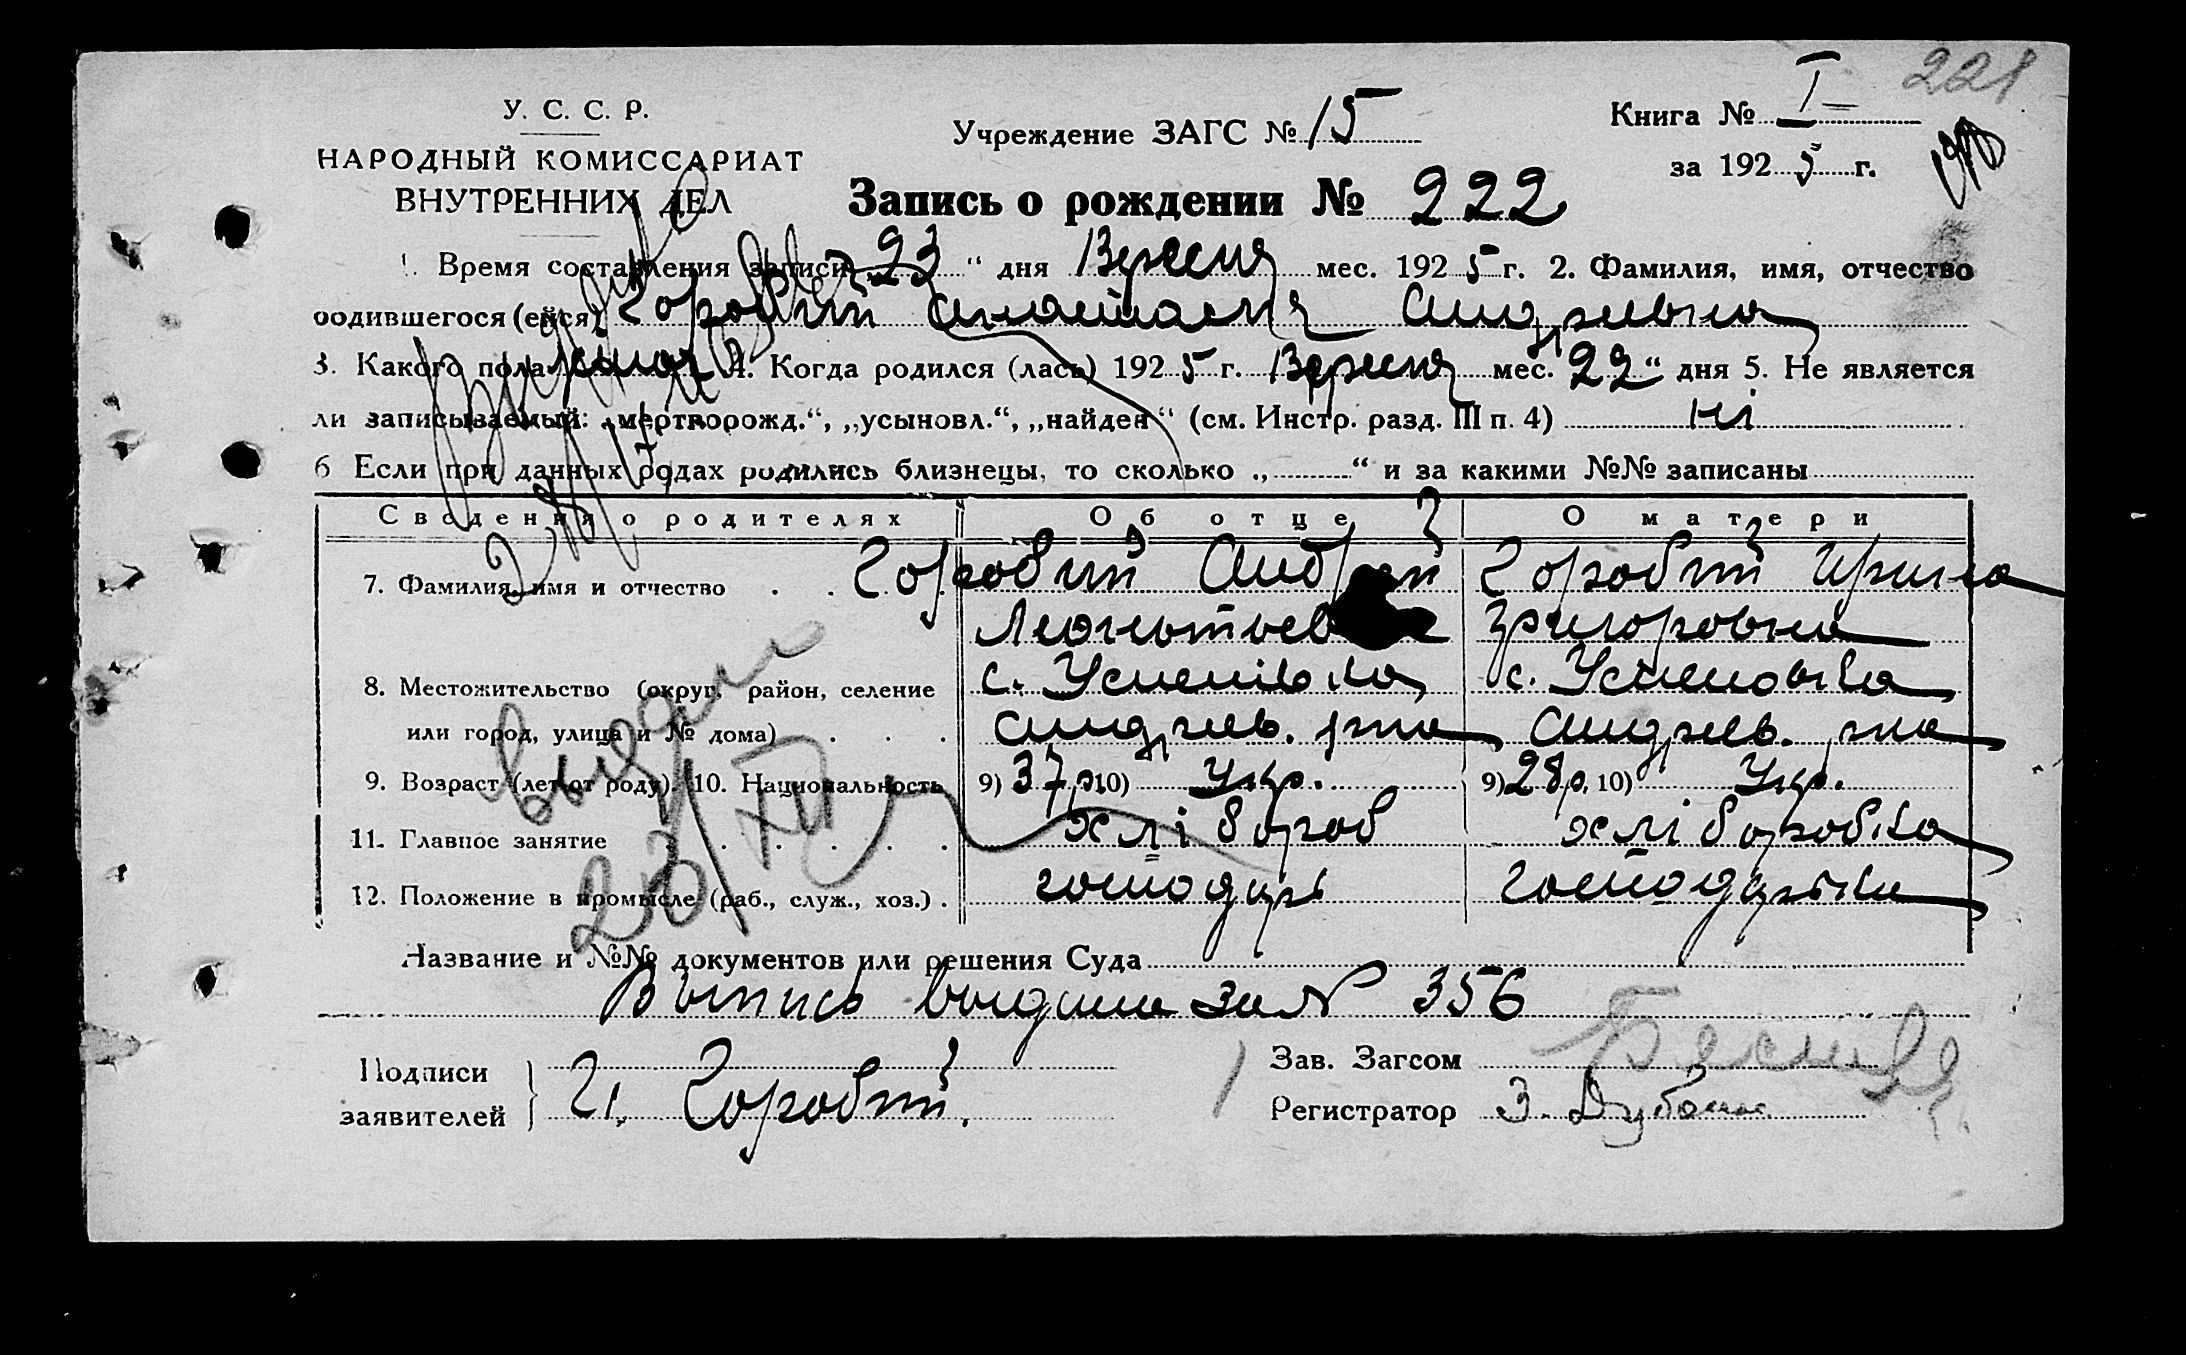 221
У. С. С. Р.
НАРОДНЫЙ КОМИССАРИАТ
ВНУТРЕННИХ ДЕЛ
Учреждение ЗАГС № 15
Книга № I
за 1925 г.
Запись о рождении № 222
1. Время составления записи „23“ дня Вересня мес. 1925 г. 2. Фамилия, имя, отчество
родившегося (ейся) Горобий Анастасия Андреевна
3. Какого пола жіноч 4. Когда родился (лась) 1925 г. Вересня мес. 22“ дня 5. Не является
ли записываемый: „мертворожд.“, „усыновл.“, „найден“ (см. Инстр. разд. III п. 4) ні
6 Если при данных родах родились близнецы, то сколько „ “ и за какими №№ записаны
Сведения о родителях Об отце О матери
7. Фамилия, имя и отчество Горобий Андрей Горобий Ирина
Леонтьев Григоровна
8. Местожительство (округ, район, селение с. Успенівка с. Успеновка
или город, улица и № дома) Андреев. рна Андреев. рна
9. Возраст (лет от роду). 10. Национальность 9) 37 р. 10) Укр. 9) 28 р. 10) Укр.
11. Главное занятие хлібороб хліборобка
12. Положение в промысле (раб., служ., хоз.) господарь господарька
выдан
23/XII
Название и №№ документов или решения Суда
Выпись выдана за № 356
Подписи
заявителей
Горобий.
Зав. Загсом
Регистратор З. Дубов